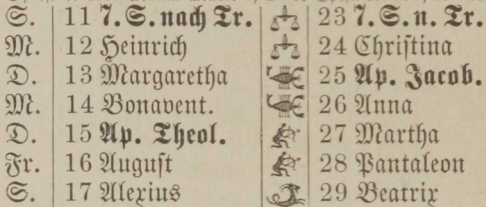 S. 11 7. S. nach Tr. ♎ 23 7. S. n. Tr.
M. 12 Heinrich ♎ 24 Christina
D. 13 Margaretha ♏ 25 Ap. Jacob.
M. 14 Bonavent. ♏ 26 Anna
D. 15 Ap. Theol. ♐ 27 Martha
Fr. 16 August ♐ 28 Pantaleon
S. 17 Alexius ♑ 29 Beatrix